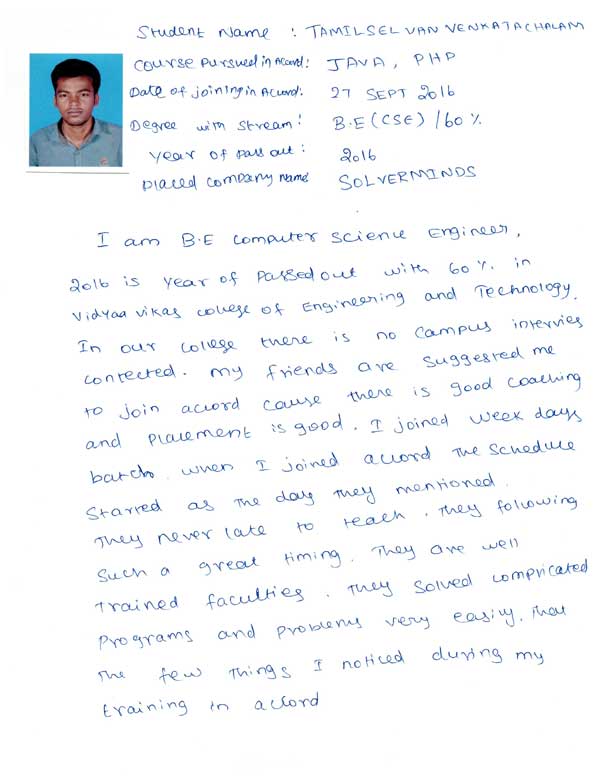 Student Name : TAMILSELVAN VENKATACHALAM
Course Pursued in Accord : JAVA, PHP
Date of joining in Accord: 27 SEPT 2016
Degree with Stream : B.E (CSE) / 60 %
Year of Pass out : 2016
Placed Company Name SOLVERMINDS
I am B.E Computer Science Engineer,
2016 is Year of Passedout with 60 % in
Vidyaa vikas college of Engineering and Technology.
In our college there is no Campus intervies
contected. My friends are suggested me
to join accord cause there is good coaching
and Placement is good. I joined week days
batch. when I joined accord The Schedule
Started as The day They mentioned.
They never late to teach. They following
Such a great timing. They are well
trained faculties. They Solved compricated
Programs and Problems very easily. That
The few Things I noticed during my
training in accord